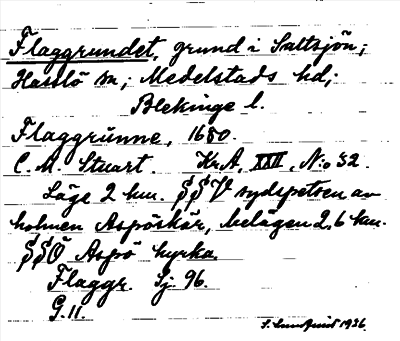 Flaggrundet, grund i Saltsjön;
Hasslö sn; Medelstads hd;
Blekinge l.
Flaggrünne, 1680.
C. M. Stuart. Kr.A, XXII, N:o 32.
Läge 2 km. SSV sydspetsen av
holmen Aspöskär, belägen 2,6 km.
SSO Aspö kyrka.
Flaggr. Sj. 96.
G.11.
S. Lundquist 1936.